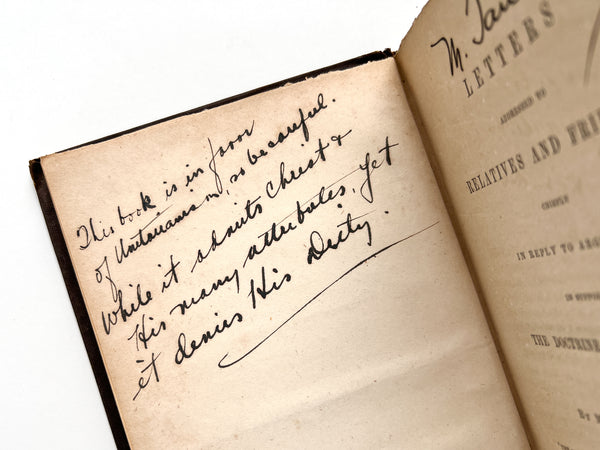 This book is in favor
of Unitarianism, so be careful.
While it admits Christ &
His many attributes, yet
it denies His Deity.
M.
LETTERS
ADDRESSED TO
RELATIVES AND
CHIEFLY
IN REPLY TO
IN
THE DOCTRINE
BY